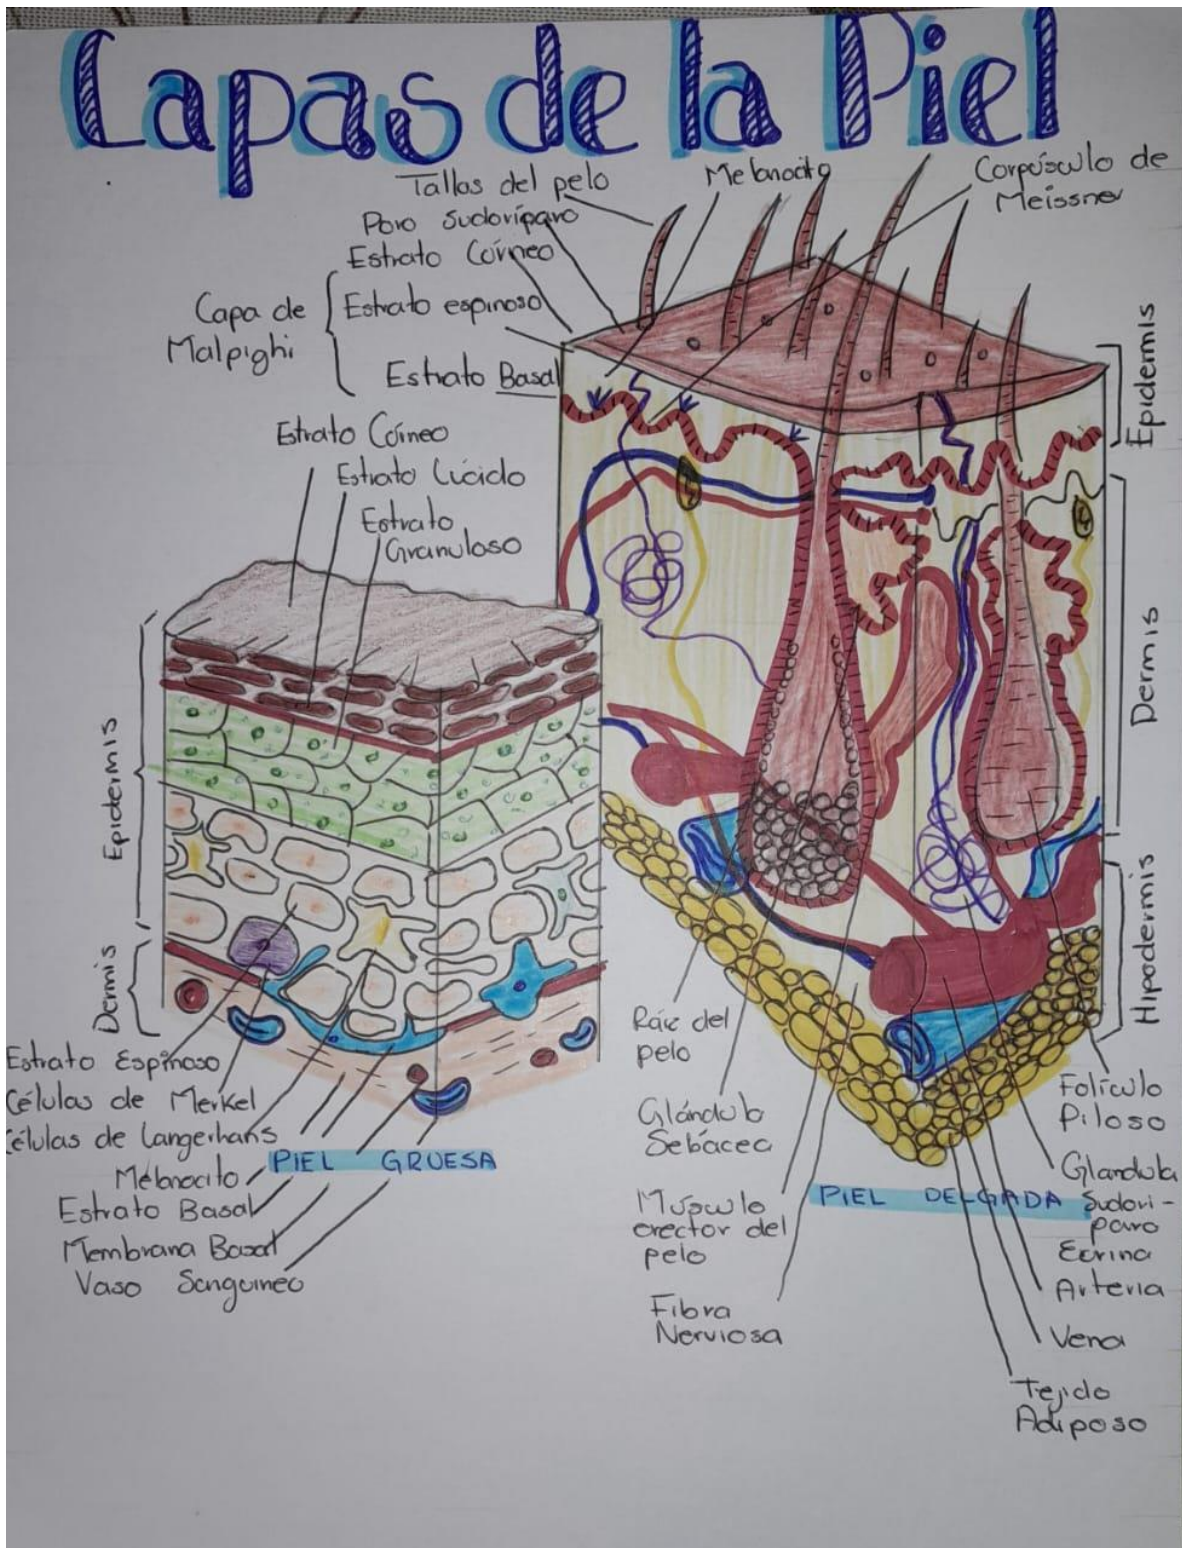 Capas de la Piel
Tallos del pelo
Poro Sudoríparo
Estrato Córneo
Capa de
Malpighi
Estrato espinoso
Estrato Basal
Melanocito
Corpúsculo de
Meissner
Estrato Córneo
Estrato Lúcido
Estrato
Granuloso
Epidermis
Dermis
Epidemis
Dermis
Hipodermis
Estrato Espinoso
Células de Merkel
Células de Langerhans
Melanocito
Estrato Basal
Membrana Basal
Vaso Sanguineo
PIEL GRUESA
Ráiz del
pelo
Glándula
Sebácea
Músculo
erector del
pelo
Fibra
Nerviosa
PIEL DELGADA
Folículo
Piloso
Glandula
Sudori-
paro
Ecrina
Arteria
Vena
Tejido
Adiposo